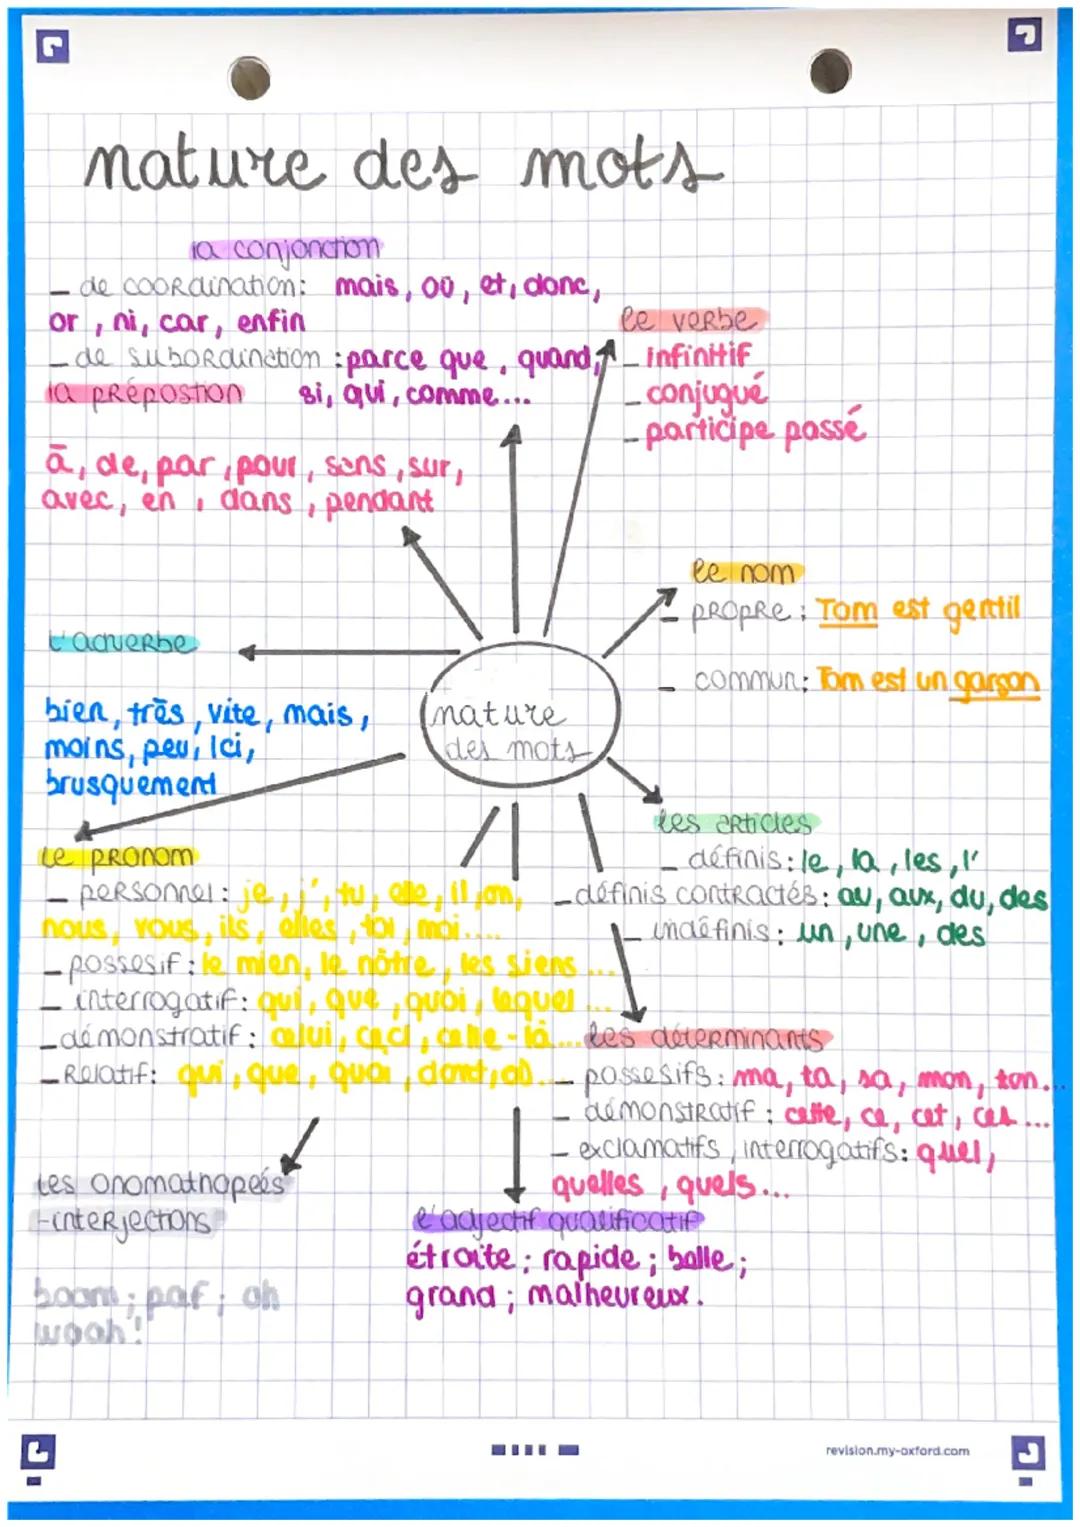 nature des mots
la conjonction
_ de coordination: mais, où, et, donc,
or, ni, car, enfin
_ de subordination : parce que, quand,
si, qui, comme...
la prépostion
à, de, par, pour, sans, sur,
avec, en, dans, pendant
le verbe
_ infinitif
_ conjugué
_ participe passé
le nom
_ propre : Tom est gentil
_ commun: Tom est un garson
l'adverbe
bien, très, vite, mais,
moins, peu, Ici,
brusquement
nature
des mots
les articles
_ définis: le, la, les, l'
_ définis contractés: au, aux, du, des
_ indéfinis: un, une, des
le pronom
_ personnel: je, j', tu, elle, il, on,
nous, vous, ils, elles, toi, moi....
_ possesif: le mien, le nôtre, les siens ...
_ interrogatif: qui, que, quoi, lequel ...
_ démonstratif: celui, ceci, celle-là...
_ Relatif: qui, que, quoi, dont, où...
les déterminants
_ possesifs: ma, ta, sa, mon, ton...
_ démonstratif: cette, ce, cet, ces...
_ exclamatifs, interrogatifs: quel,
quelles, quels...
les onomathopeés
-interjections
boom; paf; oh
wooh!
l'adjectif qualificatif
étroite; rapide; balle;
grand; malheureux.
revision.my-oxford.com